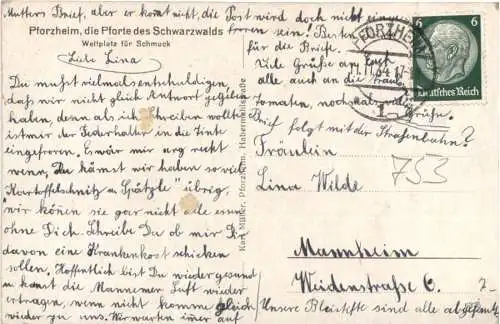 Mutters Brief, aber er kommt nicht, die Post wird doch nicht ein
Pforzheim, die Pforte des Schwarzwalds
Weltplatz für Schmuck
froren sein! Besten
für die Briefe.
Viele Grüße an Euch
alle auch an die
Tomaten, nochmals viele
Grüße.
Brief folgt mit der Straßenbahn?
Liebe Lina
Du mußt vielmals entschuldigen,
daß wir nicht gleich Antwort gegeben
haben, denn als ich Schreiben wollte
ist mir der Federhalter in die Tinte
eingefroren. Es wär mir arg recht
wenn, Du kämst wir haben soviel
"Kartoffelschnitz u. Spätzle" übrig,
wir können sie gar nicht alle essen
ohne Dich. Schreibe Da ob wir Dir
davon eine Krankenkost schicken
sollen. Hoffentlich bist Du wieder gesund
u. kannst die Mannemer Luft wieder
ertragen, wenn nicht komme gleich
wieder zu uns. Wir warten immer auf
Karl Müller, Pforzheim, Habermehlstraße
PFORZHEIM
6
6
Deutsches Reich
Fräulein
Lina Wilde
753
Mannheim
Weidenstraße 6.
Unsere Bleistifte sind alle